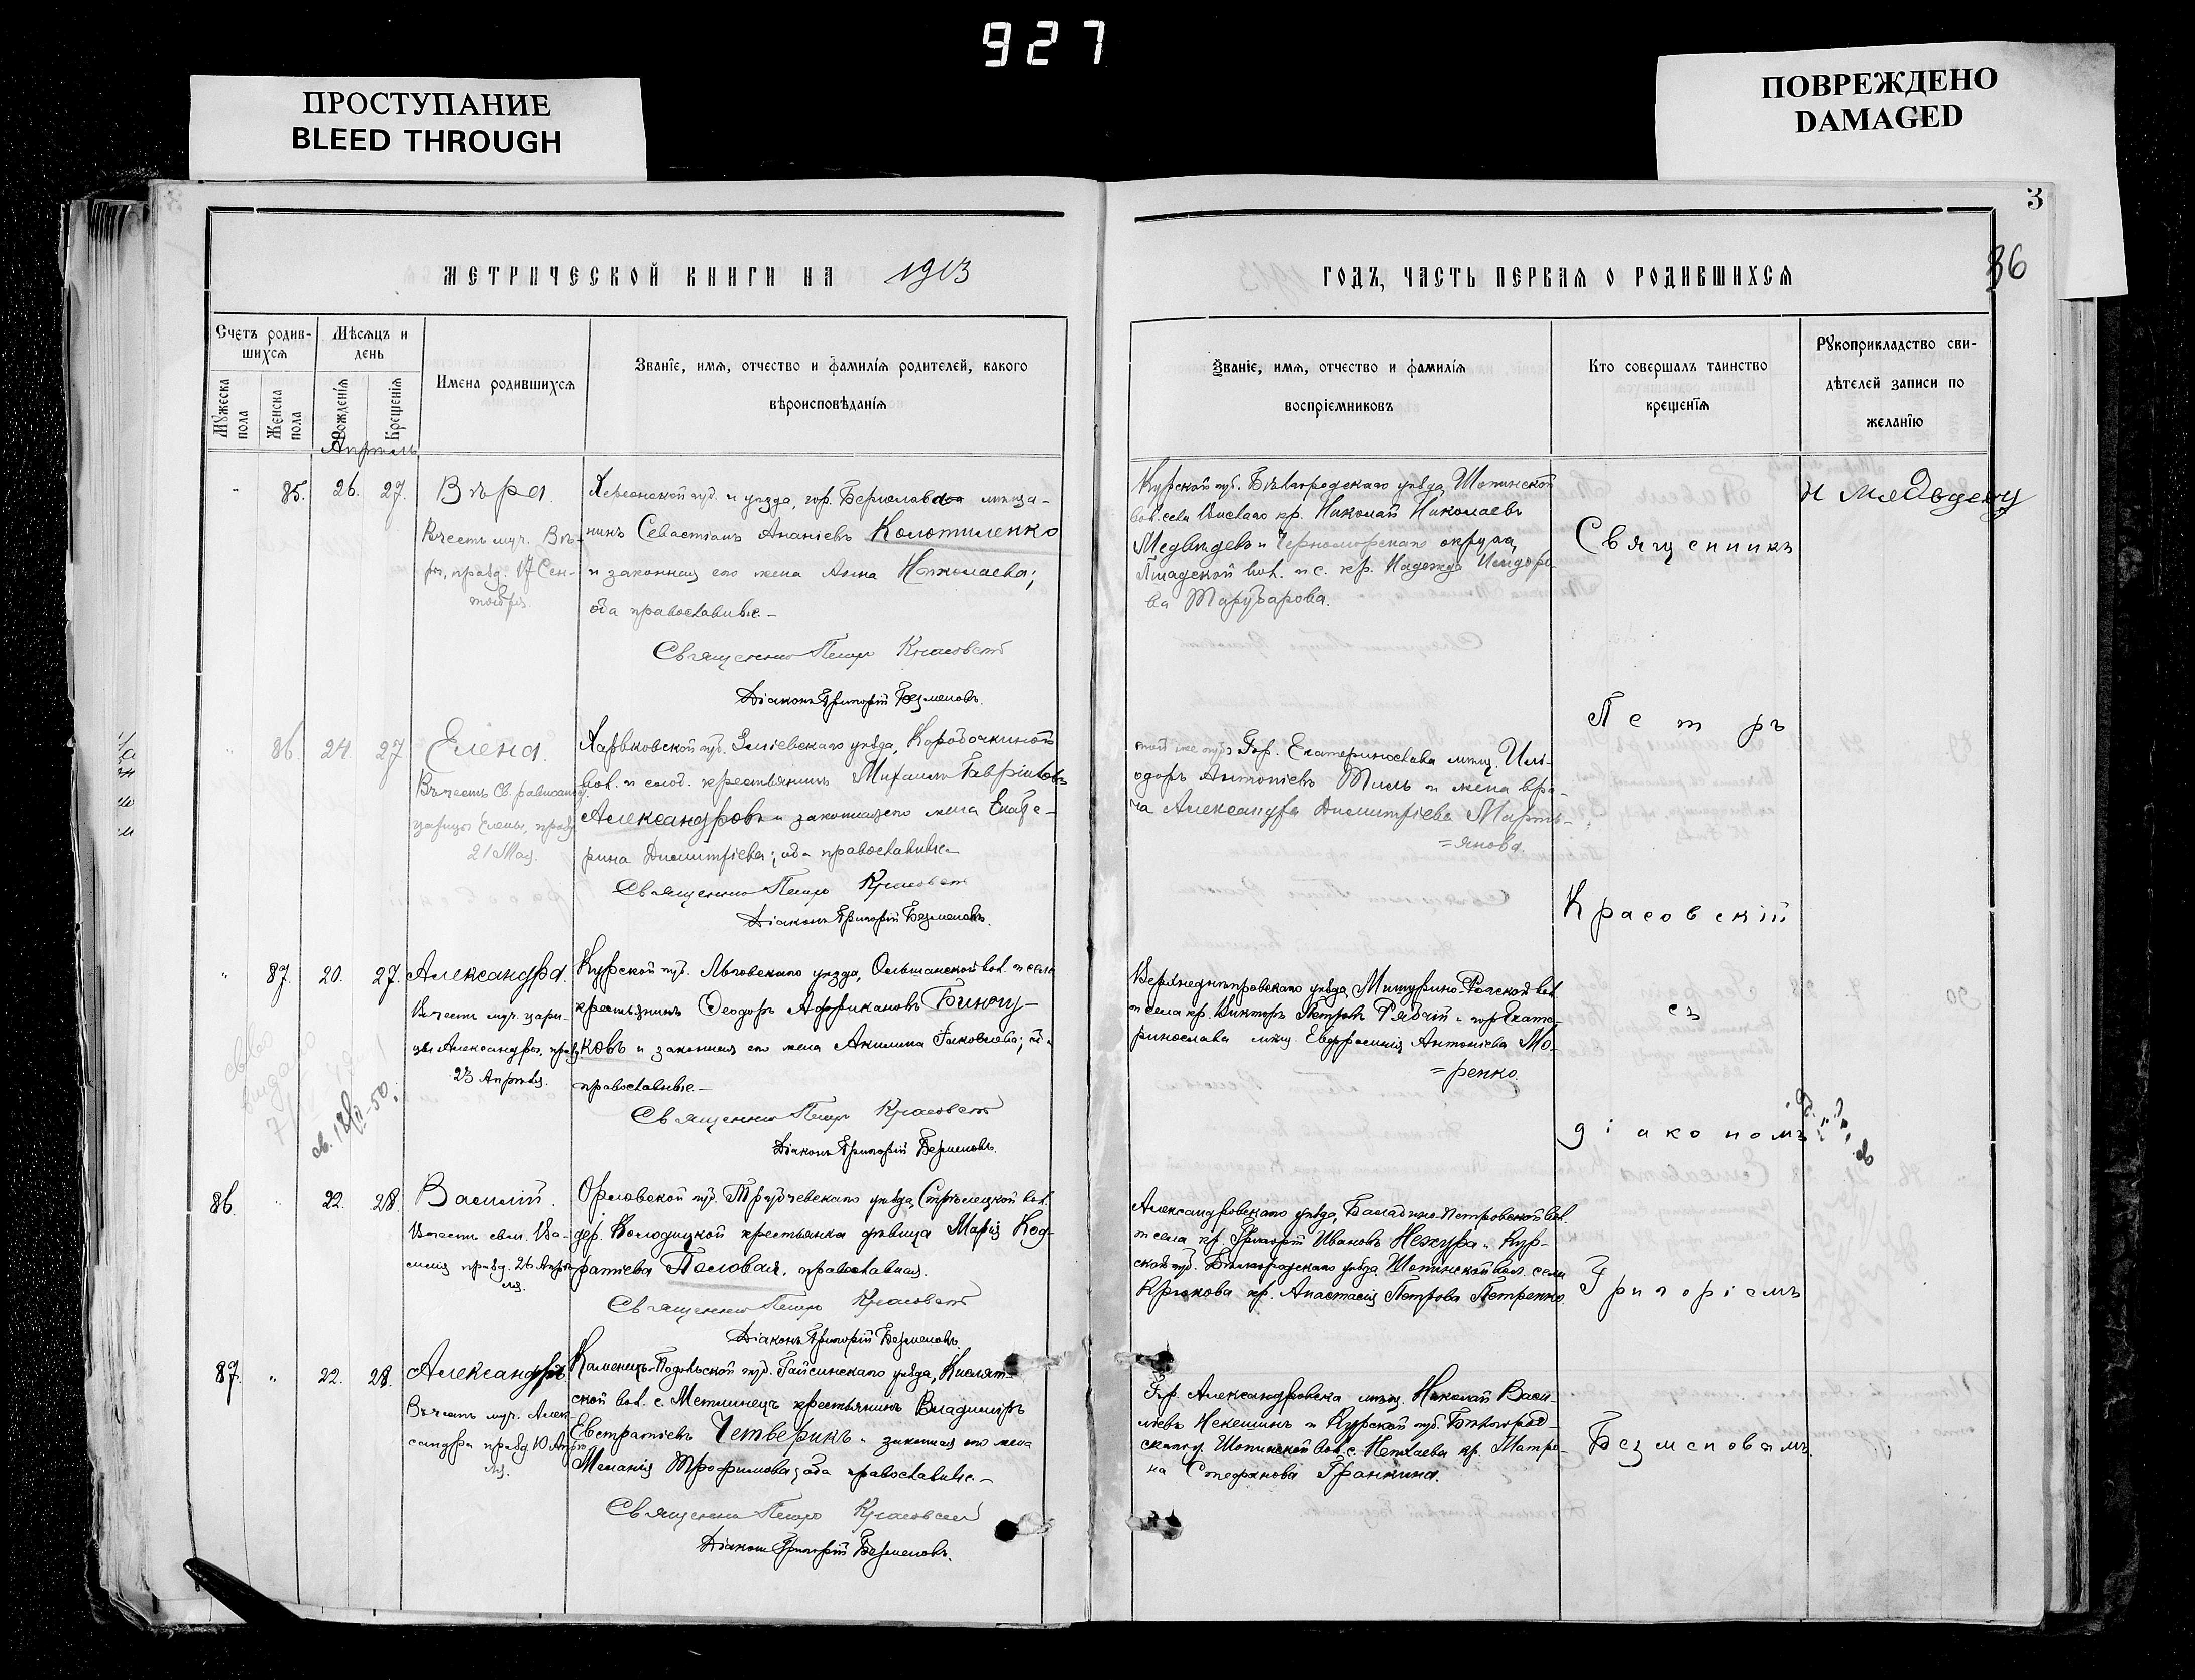 927
ПРОСТУПАНИЕ
BLEED THROUGH
ПОВРЕЖДЕНО
DAMAGED
3
36
МЕТРИЧЕСКОЙ КНИГИ НА 1913
ГОДЪ, ЧАСТЬ ПЕРВАЯ О РОДИВШИХСЯ
Счетъ родив-
шихся
Мужеска пола
Женска пола
Мѣсяцъ и
день
Рожденія
Крещенія
Имена родившихся
Званіе, имя, отчество и фамилія родителей, какого
вѣроисповѣданія
Званіе, имя, отчество и фамилія
воспріемниковъ
Кто совершалъ таинство
крещенія
Рукоприкладство сви-
дѣтелей записи по
желанію
Апрѣль
85. 26. 27. Вѣра.
Въ честь муч. Вѣ-
ры, празд. 17 Сен-
тября.
Херсонской губ. и уѣзда, гор. Берислава мѣща-
нинъ Севастіанъ Ананіевъ Колотиленко
и законная его жена Анна Николаева;
оба православные.
Священникъ Петръ Красовскій
Діаконъ Григорій Безменовъ.
Курской губ. Бѣлгородскаго уѣзда, Шопинской
вол. села кр. Николай Николаевъ
Медвѣдевъ и Черноморскаго округа,
вол. и с. кр. Надежда Исидоро-
ва
86 24 27 Елена.
Въ честь св. равноап.
царицы Елены, празд.
21 Мая.
Харьковской губ. Зміевскаго уѣзда, Коробочкиной
вол. и слоб. крестьянинъ Михаилъ Гавріиловъ
Александровъ и законная его жена Екате-
рина Димитріева; оба православные
Священникъ Петръ Красовскій
Діаконъ Григорій Безменовъ.
той же губ. Гор. Екатеринослава мѣщ. Илі-
одоръ Антоніевъ и жена вра-
ча Александра Димитріева Марть-
=янова.
87. 20. 27. Александра.
Въ честь муч. цари-
цы Александры, празд.
23 Апрѣля.
Курской губ. Льговскаго уѣзда, Ольшанской вол. и села
крестьянинъ Ѳеодоръ Африкановъ Бинчу-
ковъ и законная его жена Акилина Іаковлева; оба
православные.
Священникъ Петръ Красовскій
Діаконъ Григорій Безменовъ.
Верхнеднѣпровскаго уѣзда, Мишурино-Рогской вол.
и села кр. Викторъ Петровъ Рябчій и гор. Екате-
ринослава мѣщ. Евфросинія Антоніева Мо-
=ренко.
св. 18/II-50.
86. 22. 28. Василій.
Въ честь свм. Ва-
силія празд. 26 Апрѣ-
ля.
Орловской губ. Трубчевскаго уѣзда, Стрѣлецкой вол.
дер. крестьянка дѣвица Марія Код-
ратіева Половая, православная.
Священникъ Петръ Красовскій
Діаконъ Григорій Безменовъ.
Александровскаго уѣзда, Бѣловол.
и села кр. Григорій Ивановъ Нехура и Кур-
ской губ. Бѣлгородскаго уѣзда Шопинской вол. села
Крюкова кр. Анастасія Петрова Петренко.
87. 22. 28. Александръ
Въ честь муч. Алек-
сандра празд. 10 Апрѣ-
ля.
Каменецъ-Подольской губ. Гайсинскаго уѣзда, Кислят-
ской вол. с. Метлинецъ крестьянинъ Владиміръ
Евстратіевъ Четверикъ и законная его жена
Меланія Трофимова; оба православные.
Священникъ Петръ Красовскій
Діаконъ Григорій Безменовъ.
Гор. Александровска мѣщ. Николай Васи-
льевъ Некешинъ и Курской губ. Бѣлгород-
скаго у. Шопинской вол. с. Нехаева кр. Матро-
на Стефанова Гранкина.
Священникъ
Петръ
Красовскій
съ
діакономъ
Григоріемъ
Безменовымъ.